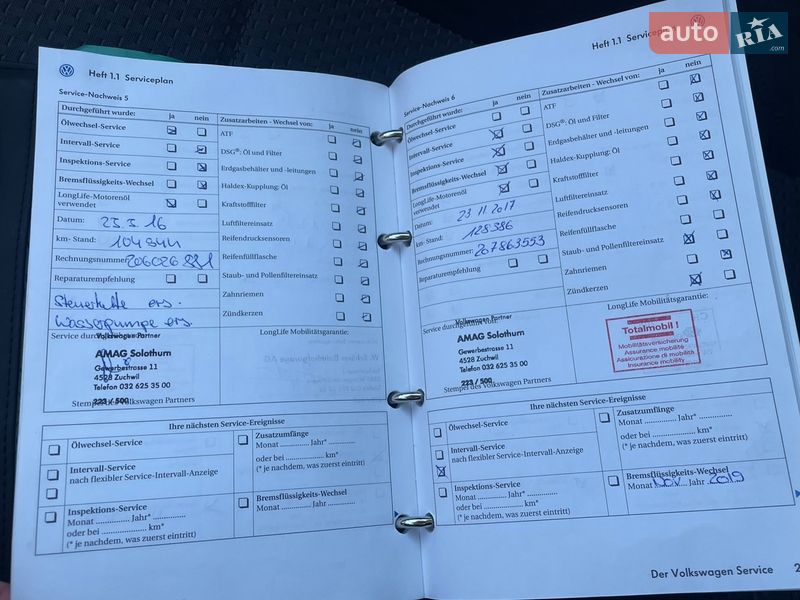 Heft 1.1 Serviceplan
Service-Nachweis 5
Durchgeführt wurde: ja nein Zusatzarbeiten - Wechsel von: ja nein
Ölwechsel-Service ATF
Intervall-Service DSG®: Öl und Filter
Inspektions-Service Erdgasbehälter und -leitungen
Bremsflüssigkeits-Wechsel Haldex-Kupplung: Öl
LongLife-Motorenöl
verwendet Kraftstofffilter
Datum: 23.5.16 Luftfiltereinsatz
km- Stand: 104844 Reifendrucksensoren
Rechnungsnummer: 206026881 Reifenfüllflasche
Reparaturempfehlung Staub- und Pollenfiltereinsatz
Steuerkette ers. Zahnriemen
Wasserpumpe ers. Zündkerzen
Service durchgeführt von: LongLife Mobilitätsgarantie:
Volkswagen Partner
AMAG Solothurn
Gewerbestrasse 11
4528 Zuchwil
Telefon 032 625 35 00
223 / 500
Stempel des Volkswagen Partners
Ihre nächsten Service-Ereignisse
Ölwechsel-Service
Intervall-Service
nach flexibler Service-Intervall-Anzeige
Inspektions-Service
Monat .............. Jahr*..............
oder bei ........................ km*
(* je nachdem, was zuerst eintritt)
Zusatzumfänge
Monat .............. Jahr*..............
oder bei ........................ km*
(* je nachdem, was zuerst eintritt)
Bremsflüssigkeits-Wechsel
Monat .............. Jahr..............
Heft 1.1 Serviceplan
Service-Nachweis 6
Durchgeführt wurde: ja nein Zusatzarbeiten - Wechsel von: ja nein
Ölwechsel-Service ATF
Intervall-Service DSG®: Öl und Filter
Inspektions-Service Erdgasbehälter und -leitungen
Bremsflüssigkeits-Wechsel Haldex-Kupplung: Öl
LongLife-Motorenöl
verwendet Kraftstofffilter
Datum: 23.11.2017 Luftfiltereinsatz
km- Stand: 128386 Reifendrucksensoren
Rechnungsnummer: 207863553 Reifenfüllflasche
Reparaturempfehlung Staub- und Pollenfiltereinsatz
Zahnriemen
Zündkerzen
Service durchgeführt von: LongLife Mobilitätsgarantie:
Volkswagen Partner
AMAG Solothurn
Gewerbestrasse 11
4528 Zuchwil
Telefon 032 625 35 00
223 / 500
Stempel des Volkswagen Partners
Totalmobil !
Mobilitätsversicherung
Assurance mobilité
Assicurazione di mobilità
Insurance mobility
Ihre nächsten Service-Ereignisse
Ölwechsel-Service
Intervall-Service
nach flexibler Service-Intervall-Anzeige
Inspektions-Service
Monat .............. Jahr*..............
oder bei ........................ km*
(* je nachdem, was zuerst eintritt)
Zusatzumfänge
Monat .............. Jahr*..............
oder bei ........................ km*
(* je nachdem, was zuerst eintritt)
Bremsflüssigkeits-Wechsel
Monat Nov. Jahr 2019
Der Volkswagen Service 2
auto RIA .com